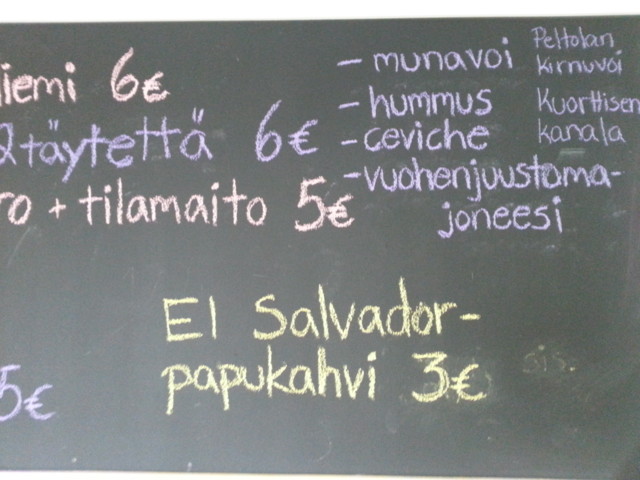 liemi 6€
2 täytettä 6€
ro + tilamaito 5€
- munavoi
- hummus
- ceviche
- vuohenjuustoma-
joneesi
Peltolan
kirnuvoi
Kuorttisen
kanala
El Salvador-
papukahvi 3€
sis.
5€